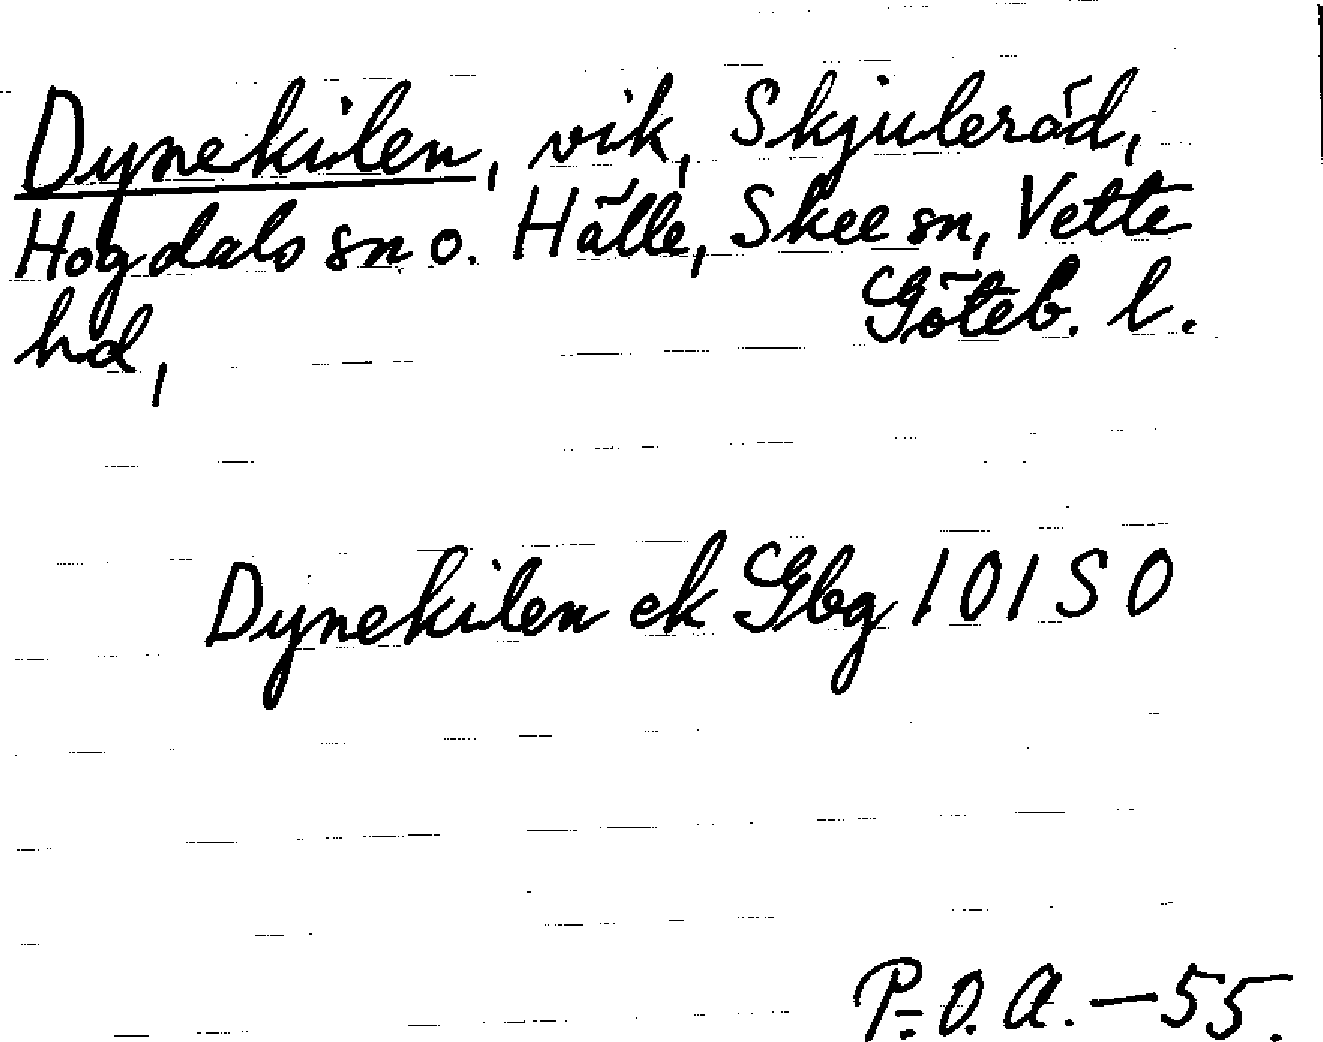 Dynekilen, vik, Skjuleröd,
Hogdals sn o. Hälle, Skee sn, Vette
hd, Göteb. l.
Dynekilen ek Gbg 101 SO
P.O.A. — 55.